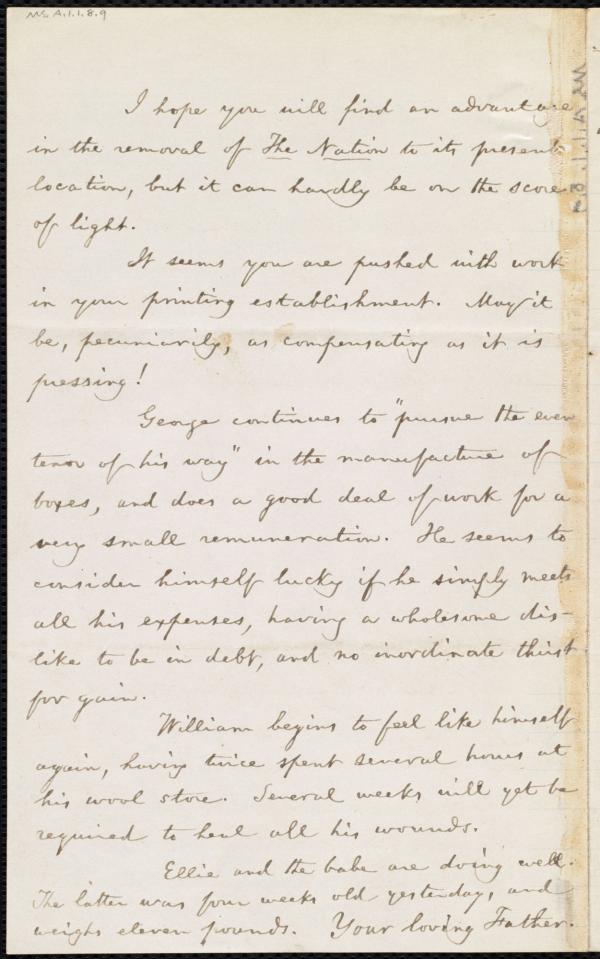 MS. A.1.1.8.9
I hope you will find an advantage
in the removal of The Nation to its present
location, but it can hardly be on the score
of light.
It seems you are pushed with work
in your printing establishment. May it
be, pecuniarily, as compensating as it is
pressing!
George continues to "pursue the even
tenor of his way" in the manufacture of
boxes, and does a good deal of work for a
very small remuneration. He seems to
consider himself lucky if he simply meets
all his expenses, having a wholesome dis-
like to be in debt, and no inordinate thirst
for gain.
William begins to feel like himself
again, having twice spent several hours at
his wool store. Several weeks will yet be
required to heal all his wounds.
Ellie and the babe are doing well.
The latter was four weeks old yesterday, and
weighs eleven pounds. Your loving Father.